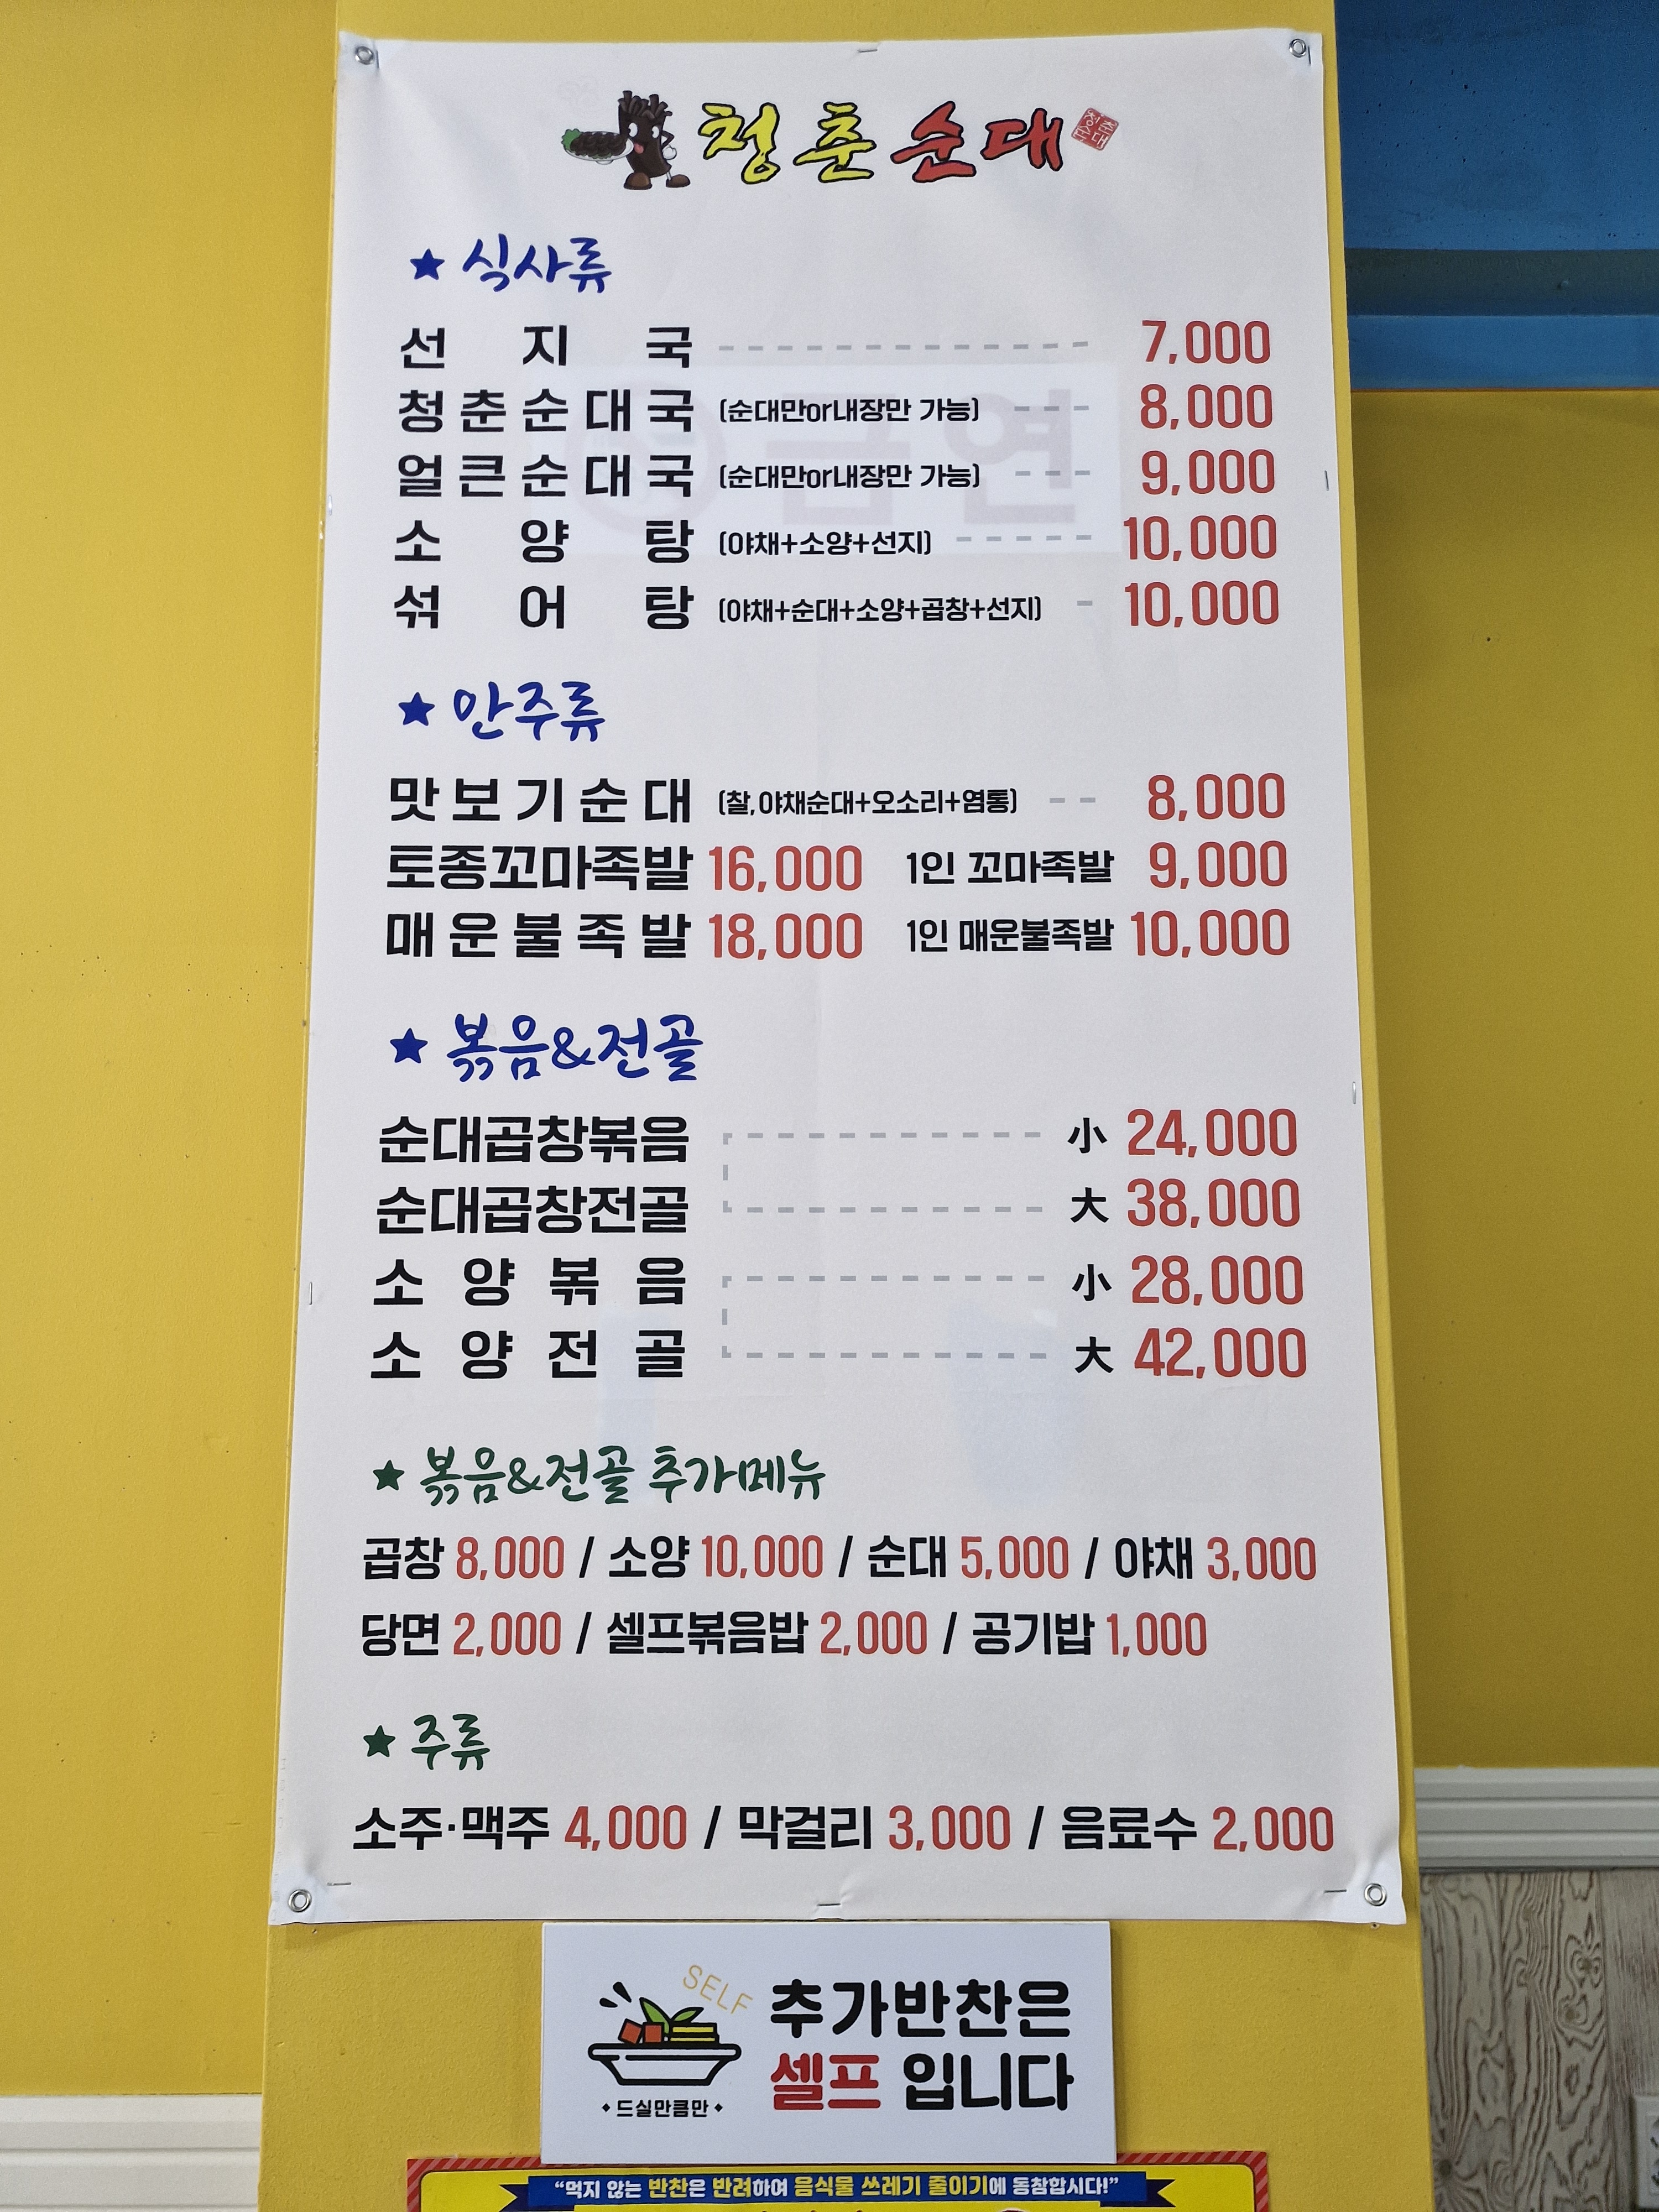 청춘순대 청춘순대
★ 식사류
선지국 7,000
청춘순대국 (순대만or내장만 가능) 8,000
얼큰순대국 (순대만or내장만 가능) 9,000
소양탕 (야채+소양+선지) 10,000
섞어탕 (야채+순대+소양+곱창+선지) 10,000
★ 안주류
맛보기순대 (찰,야채순대+오소리+염통) 8,000
토종꼬마족발 16,000 1인 꼬마족발 9,000
매운불족발 18,000 1인 매운불족발 10,000
★ 볶음&전골
순대곱창볶음 小 24,000
순대곱창전골 大 38,000
소양볶음 小 28,000
소양전골 大 42,000
★ 볶음&전골 추가메뉴
곱창 8,000 / 소양 10,000 / 순대 5,000 / 야채 3,000
당면 2,000 / 셀프볶음밥 2,000 / 공기밥 1,000
★ 주류
소주·맥주 4,000 / 막걸리 3,000 / 음료수 2,000
SELF
추가반찬은
셀프 입니다
드실만큼만
“먹지 않는 반찬은 반려하여 음식물 쓰레기 줄이기에 동참합시다!”